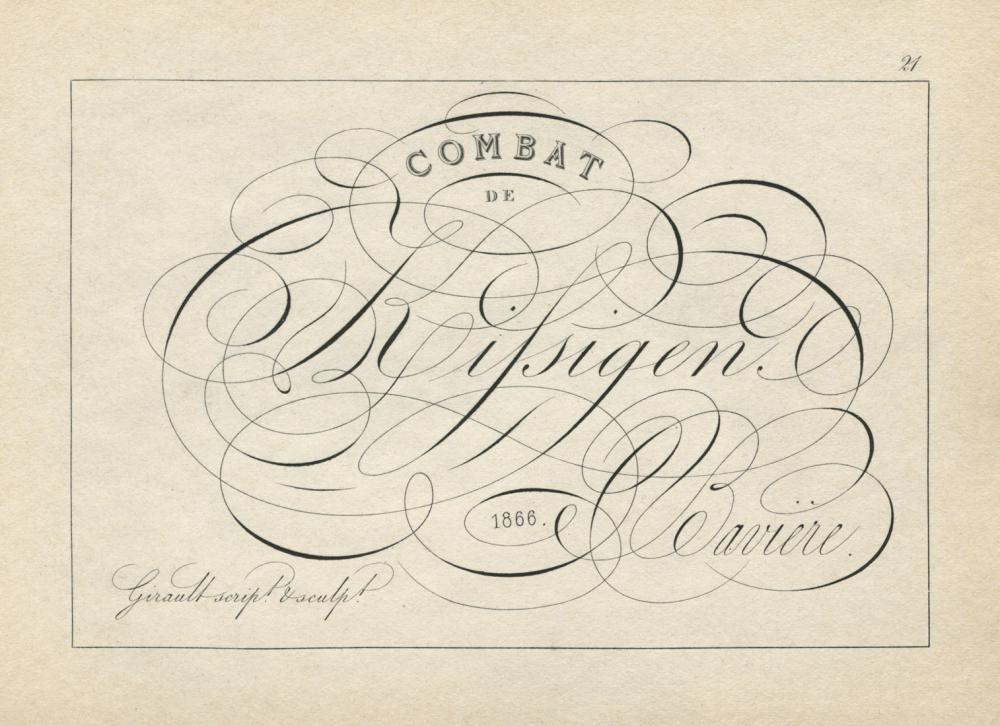 21
COMBAT
DE
Kissigen.
1866.
Bavïere.
Girault scrip.t & sculp.t